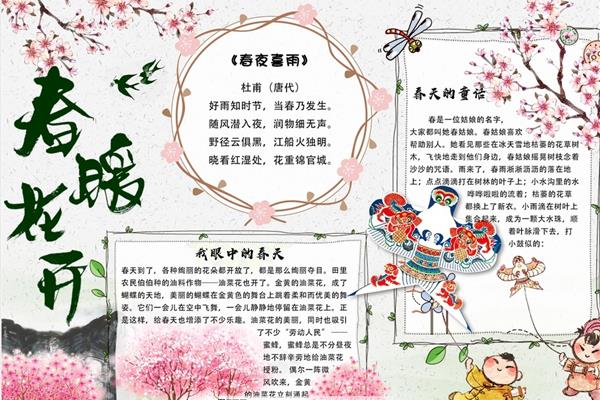 春暖花开
《春夜喜雨》
杜甫（唐代）
好雨知时节，当春乃发生。
随风潜入夜，润物细无声。
野径云俱黑，江船火独明。
晓看红湿处，花重锦官城。
春天的童话
春是一位姑娘的名字，
大家都叫她春姑娘。春姑娘喜欢
帮助别人。她看见那些在冰天雪地枯萎的花草树
木，飞快地走到他们身边，春姑娘摇晃树枝念着
沙沙的咒语。雨来了，春雨淅淅沥沥的落在地
上；点点滴滴打在树林的叶子上；小水沟里的水
哗哗啦啦的流着；枯萎的花草
都换上了新衣。小雨滴在树叶上
集合起来，成为一颗大水珠，顺
着叶脉滑下去，打
小鼓似的：
我眼中的春天
春天到了，各种绚丽的花朵都开放了，都是那么绚丽夺目。田里
农民伯伯种的油料作物——油菜花也开了。金黄的油菜花，成了
蝴蝶的天地，美丽的蝴蝶在金黄色的舞台上跳着柔和而优美的舞
姿。它们一会儿在空中飞舞，一会儿静静地停留在油菜花上。正
是这样，给春天也增添了不少乐趣。油菜花的美丽，同时也吸引
了不少“劳动人民”——
蜜蜂，蜜蜂总是不分昼夜
地不辞辛劳地给油菜花
授粉。偶尔一阵微
风吹来，金黄
的油菜花立刻涌起